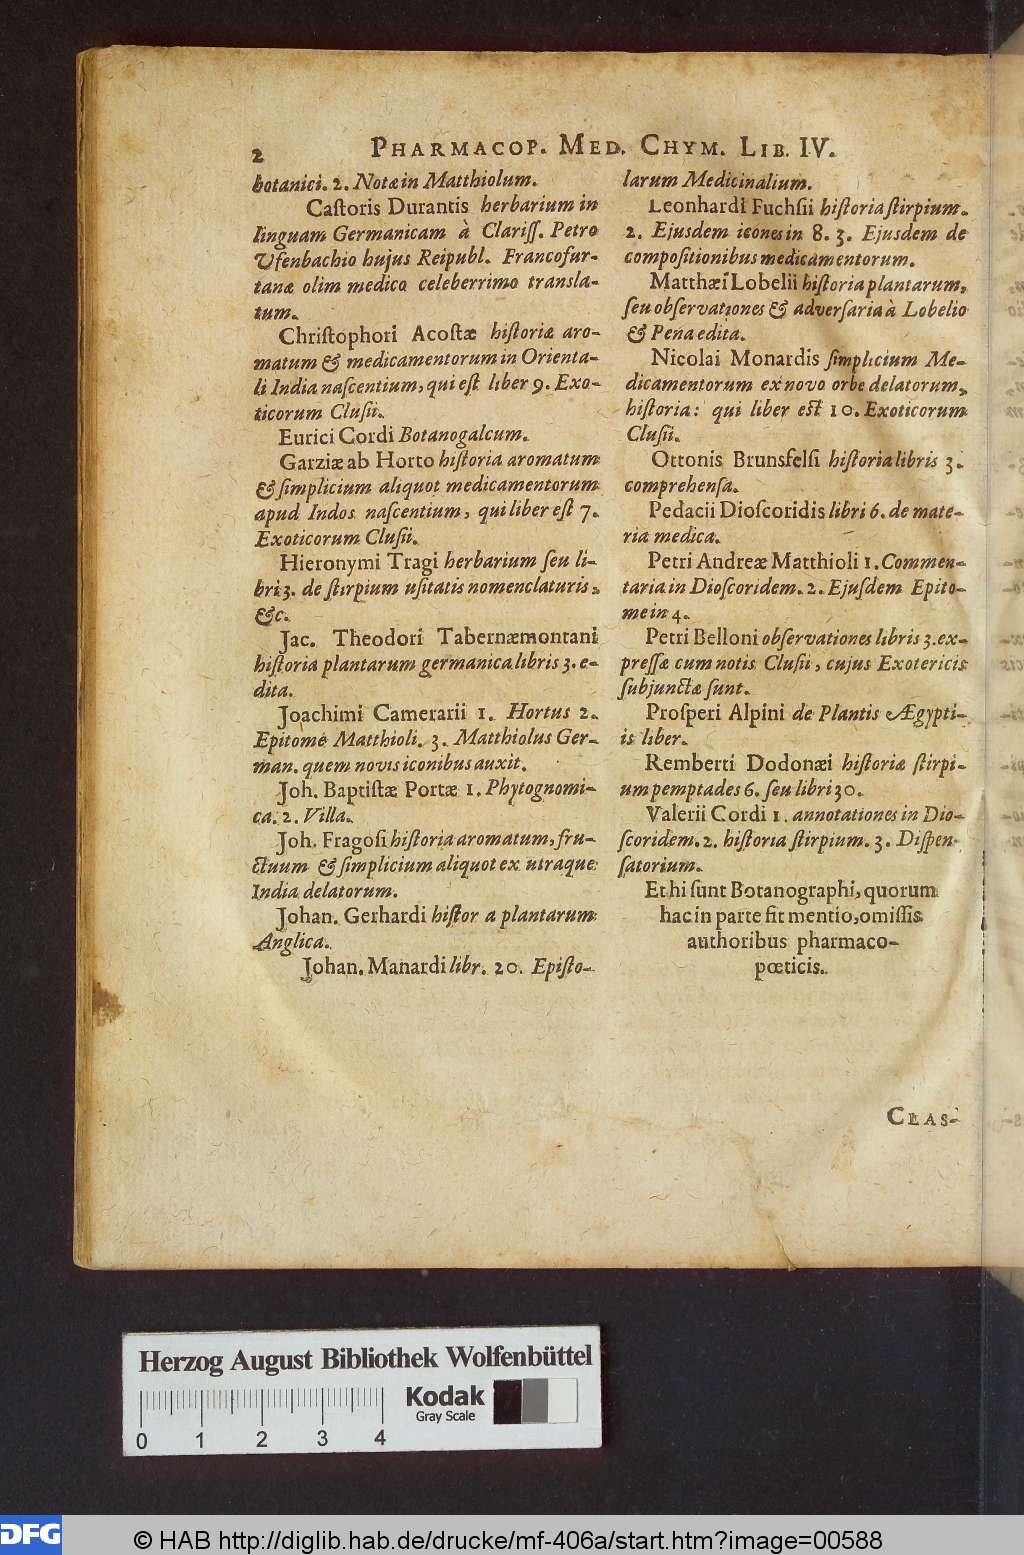 2 PHARMACOP. MED. CHYM. LIB. IV.
botanici. 2. Notæ in Matthiolum.
Caſtoris Durantis herbarium in
linguam Germanicam à Clariſſ. Petro
Vfenbachio hujus Reipubl. Francofur-
tanæ olim medico celeberrimo transla-
tum.
Chriſtophori Acoſtæ hiſtoriæ aro-
matum & medicamentorum in Orienta-
li India naſcentium, qui eſt liber 9. Exo-
ticorum Cluſii.
Eurici Cordi Botanogalcum.
Garziæ ab Horto hiſtoria aromatum
& ſimplicium aliquot medicamentorum
apud Indos naſcentium, qui liber eſt 7.
Exoticorum Cluſii.
Hieronymi Tragi herbarium ſeu li-
bri 3. de ſtirpium uſitatis nomenclaturis,
&c.
Jac. Theodori Tabernæmontani
hiſtoria plantarum germanica libris 3. e-
dita.
Joachimi Camerarii 1. Hortus 2.
Epitome Matthioli. 3. Matthiolus Ger-
man. quem novis iconibus auxit.
Joh. Baptiſtæ Portæ 1. Phytognomi-
ca. 2. Villa.
Joh. Fragoſi hiſtoria aromatum, fru-
ctuum & ſimplicium aliquot ex utraque
India delatorum.
Johan. Gerhardi hiſtor a plantarum
Anglica.
Johan. Manardi libr. 20. Epiſto-
larum Medicinalium.
Leonhardi Fuchſii hiſtoria ſtirpium.
2. Ejusdem icones in 8. 3. Ejusdem de
compoſitionibus medicamentorum.
Matthæi Lobelii hiſtoria plantarum,
ſeu obſervationes & adverſaria à Lobelio
& Pena edita.
Nicolai Monardis ſimplicium Me-
dicamentorum ex novo orbe delatorum,
hiſtoria: qui liber eſt 10. Exoticorum
Cluſii.
Ottonis Brunsfelſi hiſtoria libris 3.
comprehenſa.
Pedacii Dioſcoridis libri 6. de mate-
ria medica.
Petri Andreæ Matthioli 1. Commen-
taria in Dioſcoridem. 2. Ejuſdem Epito-
me in 4.
Petri Belloni obſervationes libris 3. ex-
preſſæ cum notis Cluſii, cujus Exotericis
ſubjunctæ ſunt.
Proſperi Alpini de Plantis Ægypti-
is liber.
Remberti Dodonæi hiſtoriæ ſtirpi-
um pemptades 6. ſeu libri 30.
Valerii Cordi 1. annotationes in Dio-
ſcoridem. 2. hiſtoria ſtirpium. 3. Diſpen-
ſatorium.
Et hi ſunt Botanographi, quorum
hac in parte fit mentio, omiſſis
authoribus pharmaco-
pœticis.
CLAS-
Herzog August Bibliothek Wolfenbüttel
Kodak
Gray Scale
0 1 2 3 4
DFG
© HAB http://diglib.hab.de/drucke/mf-406a/start.htm?image=00588